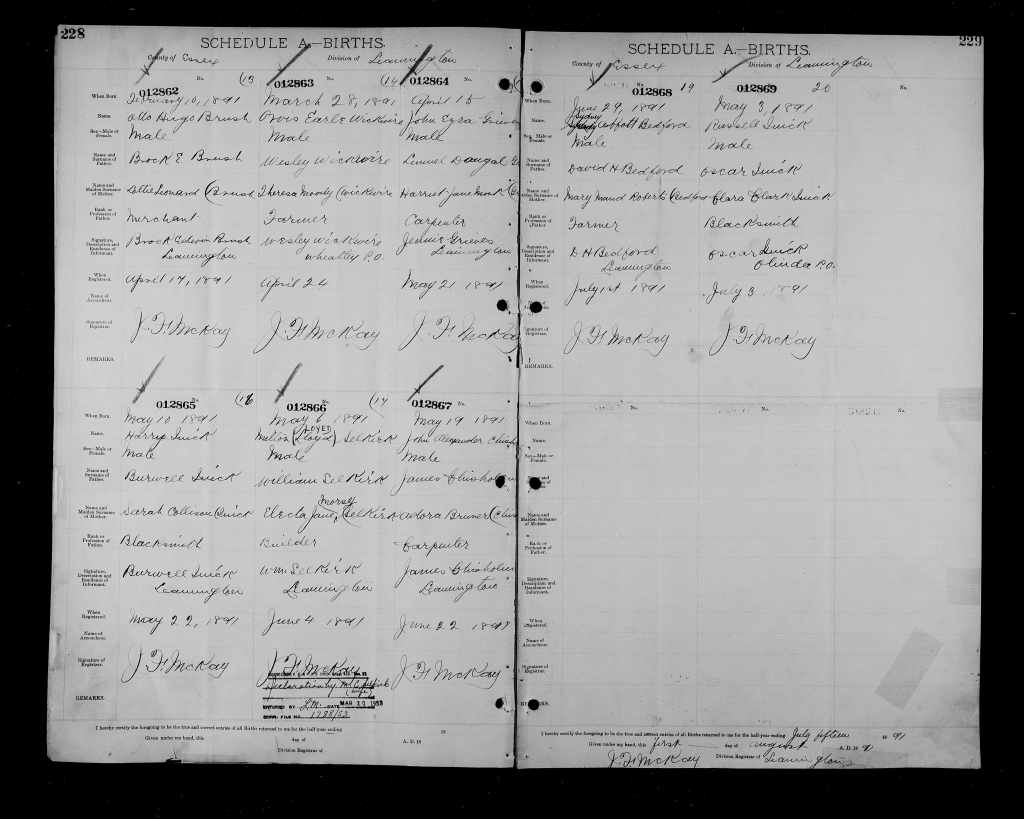 228
SCHEDULE A.—BIRTHS.
County of Essex Division of Leamington
No. (13 No. (14 No.
012862 012863 012864
When Born. February 10, 1891 March 28, 1891 April 15
Name. Otto Hugo Brush Orvis Earle Wickwire John Ezra Grieves
Sex—Male or Female. Male Male Male
Name and Surname of Father. Brock E Brush Wesley Wickwire Lemuel Dougal
Name and Maiden Surname of Mother. Lottie Leonard (Brush Theresa Moody (Wickwire Harriet Jane Monk
Rank or Profession of Father. Merchant Farmer Carpenter
Signature, Description and Residence of Informant. Brock Edwin Brush Wesley Wickwire Jennie Grieves
Leamington Wheatley P.O. Leamington
When Registered. April 17, 1891 April 24 May 21 1891
Name of Accoucheur.
Signature of Registrar. J. F. McKay J. F. McKay J. F. McKay
REMARKS.
No. (16 No. (17 No.
012865 012866 012867
When Born. May 10 1891 May 6 1891 May 19 1891
LOYED
Name. Harry Quick Milton (Lloyd) Selkirk John Alexander
Sex—Male or Female. Male Male Male
Name and Surname of Father. Burwell Quick William Selkirk James Chisholm
Morse
Name and Maiden Surname of Mother. Sarah Collison (Quick Electa Jane, (Selkirk Adora Bruner
Rank or Profession of Father. Blacksmith Builder Carpenter
Signature, Description and Residence of Informant. Burwell Quick Wm Selkirk James Chisholm
Leamington Leamington Leamington
When Registered. May 22, 1891 June 4 1891 June 22 1891
Name of Accoucheur.
Signature of Registrar. J. F. McKay J. F. McKay J. F. McKay
Declaration by
REMARKS. ENTERED BY DATE MAR 30 1953
FILE NO.
I hereby certify the foregoing to be the true and correct entries of all Births returned to me for the half-year ending 18
Given under my hand, this day of A. D. 18
Division Registrar of
229
SCHEDULE A.—BIRTHS.
County of Essex Division of Leamington
012868 19 012869 20
When Born. June 29, 1891 May 3, 1891
Sydney
Name. Abbott Bedford Russell Quick
Sex—Male or Female. Male Male
Name and Surname of Father. David H Bedford Oscar Quick
Name and Maiden Surname of Mother. Mary Maud Roberts (Bedford Clara Clark Quick
Rank or Profession of Father. Farmer Blacksmith
Signature, Description and Residence of Informant. D H Bedford Oscar Quick
Leamington Olinda P.O.
When Registered. July 1st 1891 July 3 1891
Name of Accoucheur.
Signature of Registrar. J. F. McKay J. F. McKay
REMARKS.
No. No.
When Born.
Name.
Sex—Male or Female.
Name and Surname of Father.
Name and Maiden Surname of Mother.
Rank or Profession of Father.
Signature, Description and Residence of Informant.
When Registered.
Name of Accoucheur.
Signature of Registrar.
REMARKS.
I hereby certify the foregoing to be the true and correct entries of all Births returned to me for the half-year ending July fifteen 1891
Given under my hand, this first day of August A. D. 1891
J. F. McKay Division Registrar of Leamington